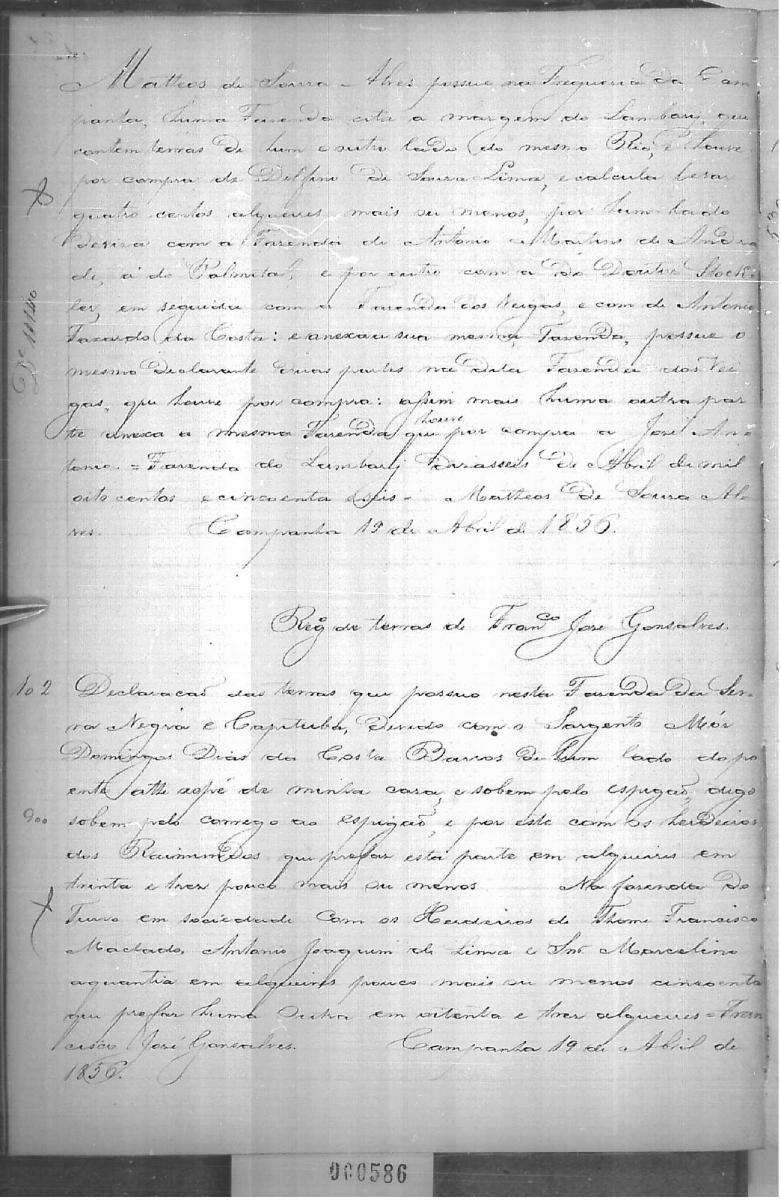 Matheos de Souza Alves possue na Freguezia da Cam
panha, huma Fazenda cita a margem do Lambary, que
contem terras de hum e outro lado do mesmo Rio, e houve
por compra de Delfino de Souza Lima, e calcula levar
quatro centos alqueires mais ou menos, por hum lado
deviza com a Fazenda de Antonio Martins de Andra
de, a do Palmital, e por outro com a do Doutor Stock
ler, em seguida com a Fazenda dos Veigas, e com de Antonio
Fazardo da Costa: e anexa a sua mesma Fazenda, possue o
mesmo Declarante duas partes na dita Fazenda dos Vei
gas, que houve por compra: assim mais huma outra par
te anexa a mesma Fazenda que houve por compra a José An
tonio = Fazenda do Lambary dezasseis de Abril de mil
oito centos e cincoenta e seis - Matheos de Souza Al
ves. Campanha 19 de Abril de 1856.
Rego de terras de Franco José Gonsalves.
102 Declaracaõ das terras que possuo nesta Fazenda da Ser
ra Negra e Capituba, devido com o Sargento Mór
Domingos Dias da Costa Barros de hum lado do po
ente athe ao pé de minha caza, e sobem pelo espigaõ, digo
900 sobem pelo corrego ao espigaõ, e por este com os herdeiros
dos Raimundos que prefas esta parte em alqueires em
trinta e tres pouco mais ou menos. Na fazenda do
Turvo em sociedade com os Herdeiros de Thome Francisco
Machado, Antonio Joaquim de Lima e Snr Marcelino
aquantia em alqueires pouco mais ou menos cincoenta
que prefas huma outra em oitenta e tres alqueires = Fran
cisco José Gonsalves. Campanha 19 de Abril de
1856.
000586